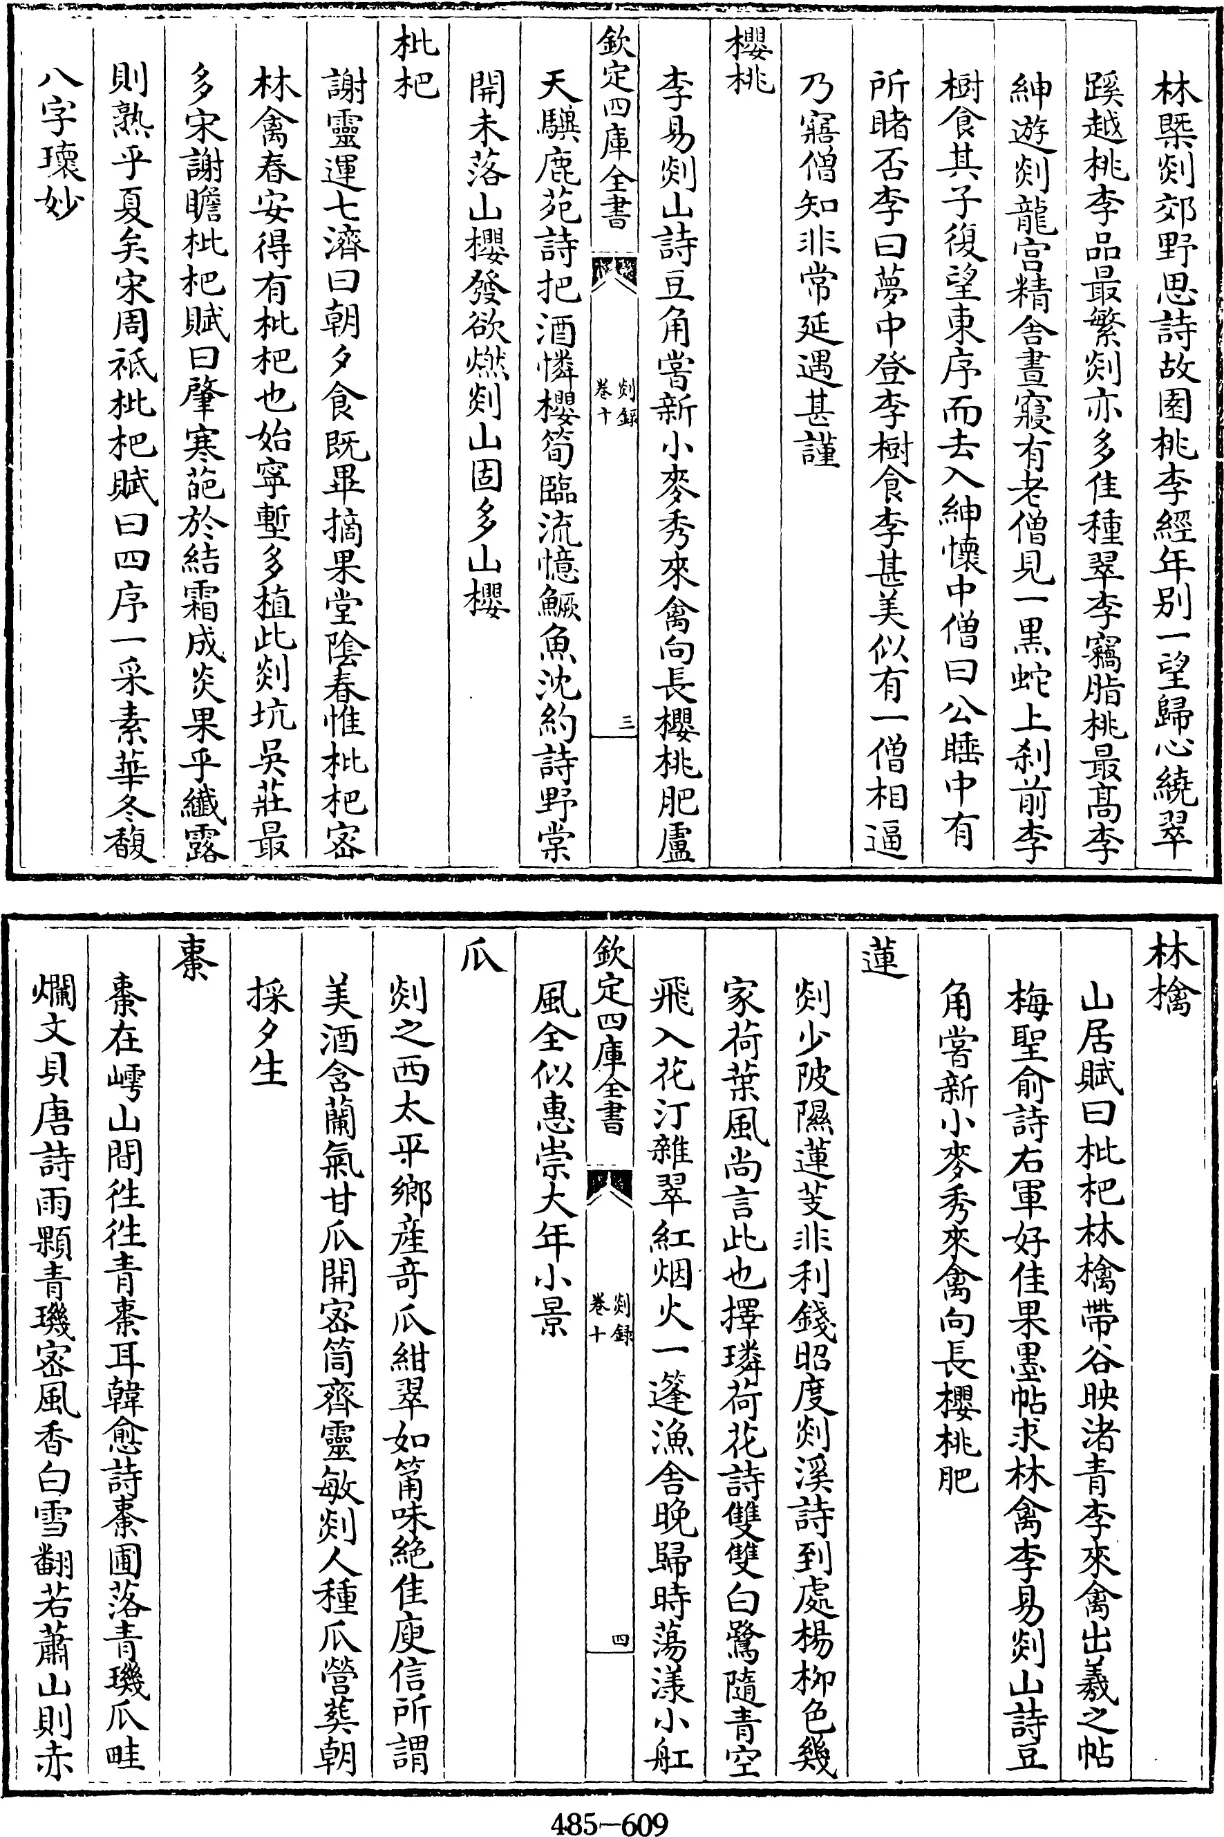 林槩剡郊野思詩故園桃李經年别一望歸心繞翠
蹊越桃李品最繁剡亦多佳種翠李竊脂桃最高李
紳遊剡龍宫精舎晝寢有老僧見一黒蛇上刹前李
樹食其子復望東序而去入紳懐中僧曰公睡中有
所睹否李曰夢中登李樹食李甚美似有一僧相逼
乃寤僧知非常延遇甚謹
櫻桃
李易剡山詩豆角嘗新小麥秀來禽向長櫻桃肥盧
欽定四庫全書
剡録
卷十
三
天驥鹿苑詩把酒憐櫻筍臨流憶鱖魚沈約詩野棠
開未落山櫻發欲燃剡山固多山櫻
枇杷
謝靈運七濟曰朝夕食既畢摘果堂陰春惟枇杷宻
林禽春安得有枇杷也始寧墅多植此剡坑吳莊最
多宋謝瞻枇杷賦曰肇寒葩於結霜成炎果乎纎露
則熟乎夏矣宋周祗枇杷賦曰四序一采素華冬馥
八字瓌妙
林檎
山居賦曰枇杷林檎帶谷映渚青李來禽出羲之帖
梅聖俞詩右軍好佳果墨帖求林禽李易剡山詩豆
角嘗新小麥秀來禽向長櫻桃肥
蓮
剡少陂隰蓮芰非利錢昭度剡溪詩到處楊柳色幾
家荷葉風尚言此也擇璘荷花詩雙雙白鷺隨青空
飛入花汀雜翠紅烟火一篷漁舎晩歸時蕩漾小舡
欽定四庫全書
剡録
卷十
四
風全似惠崇大年小景
瓜
剡之西太平鄉産奇瓜紺翠如筩味絶佳庾信所謂
美酒含蘭氣甘瓜開宻筒齊靈敏剡人種瓜營葬朝
採夕生
棗
棗在嶀山間徃徃青棗耳韓愈詩棗圃落青璣瓜畦
爛文貝唐詩雨顆青璣宻風香白雪翻若蕭山則赤
485-609